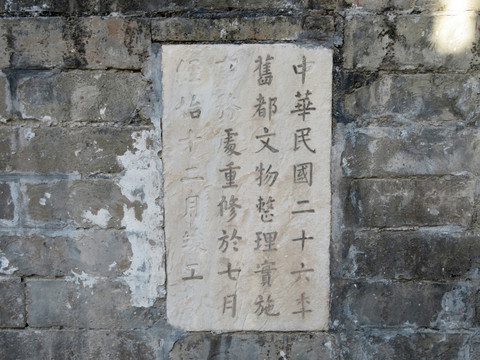 中華民國二十六年
舊都文物整理實施
事務處重修於七月
經始十二月竣工